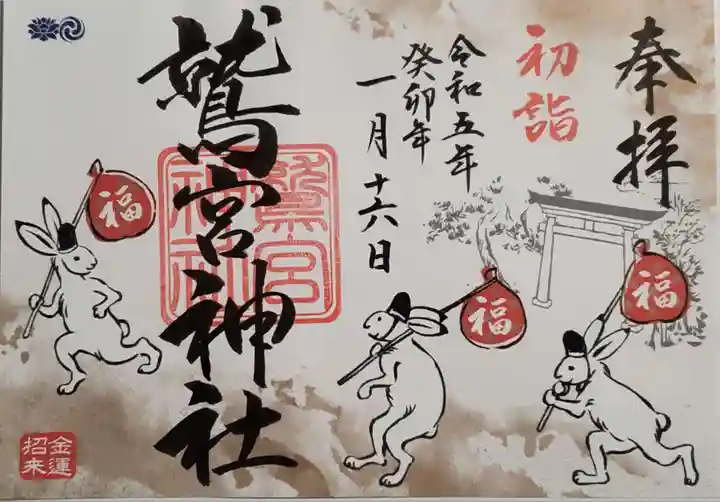 奉拝
初詣
令和五年
癸卯年
一月十六日
鷲宮神社
鷲宮
神社
福
福
福
金運
招来